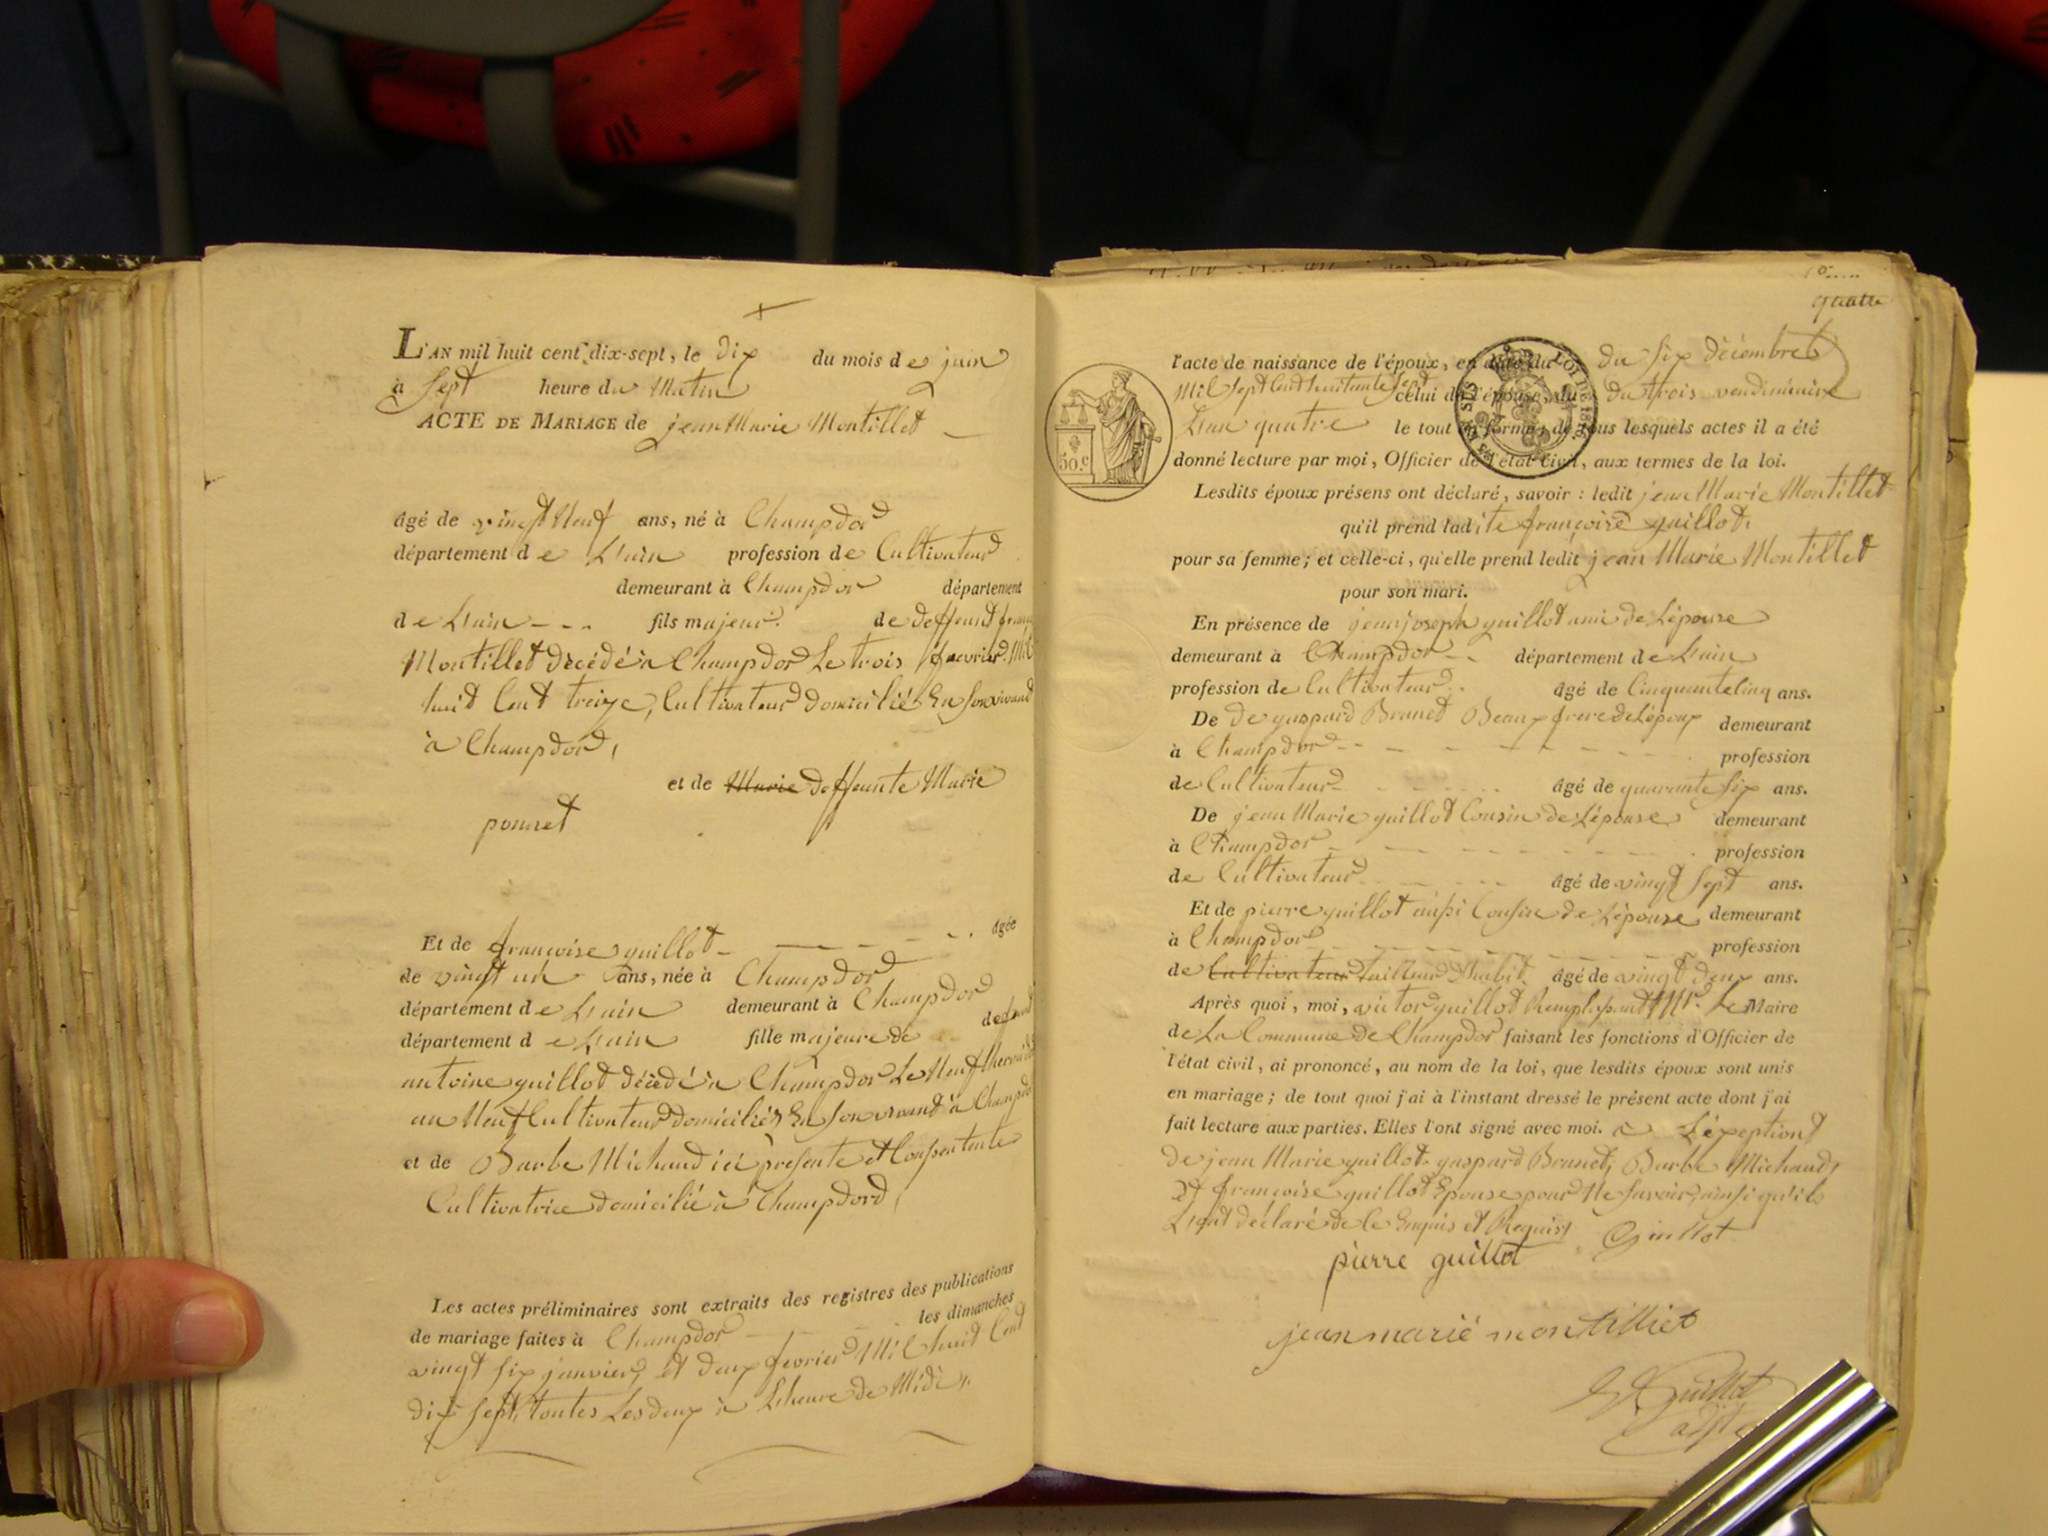 L'AN mil huit cent dix-sept, le dix du mois de juin
à sept heure du Matin
ACTE DE MARIAGE de jean Marie Montillet
âgé de vingt Neuf ans, né à Champdor
département de L'ain profession de Cultivateur
demeurant à Champdor département
de L'ain - - - fils majeur de deffeunt
Montillet décédé à Champdor Le trois fevrier Mil
huit Cent treize, Cultivateur domicilié En son vivant
à Champdor,
et de Marie deffeunte Marie
ponnet
Et de françoise guillot - âgée
de vingt un ans, née à Champdor
département de L'ain demeurant à Champdor
département de L'ain fille majeure de defeunt
antoine guillot décédé à Champdor Le Neuf
an Neuf Cultivateur domicilié En son vivant à Champdor
et de Barbe Michaud ici présente et Consentente
Cultivatrice domicilié à Champdord,
Les actes préliminaires sont extraits des registres des publications
de mariage faites à Champdor les dimanches
vingt six janvier, et deux fevrier Mil huit Cent
dix sept, toutes Les deux à L'heure de Midi,
quatre
l'acte de naissance de l'époux, en date du du six décembre
Mil sept Cent huitante sept celui de l'épouse, du du trois vendémiaire
L'an quatre le tout en forme; de tous lesquels actes il a été
50.c
donné lecture par moi, Officier de l'état civil, aux termes de la loi.
Lesdits époux présens ont déclaré, savoir : ledit jean Marie Montillet
qu'il prend ladite françoise guillot
pour sa femme; et celle-ci, qu'elle prend ledit jean Marie Montillet
pour son mari.
En présence de jean joseph guillot ami de L'épouse
demeurant à Champdor - - département de L'ain
profession de Cultivateur âgé de Cinquante Cinq ans.
De de gaspard Brunet Beaux frere de L'époux demeurant
à Champdor - - - profession
de Cultivateur âgé de quarante six ans.
De jean Marie guillot Cousin de L'épouse demeurant
à Champdor - - - profession
de Cultivateur âgé de vingt sept ans.
Et de pierre guillot aussi Cousin de L'épouse demeurant
à Champdor - - - profession
de Cultivateur tailleur d'habit âgé de vingt deux ans.
Après quoi, moi, victor guillot Remplaçant Mr. Le Maire
de La Commune de Champdor faisant les fonctions d'Officier de
l'état civil, ai prononcé, au nom de la loi, que lesdits époux sont unis
en mariage; de tout quoi j'ai à l'instant dressé le présent acte dont j'ai
fait lecture aux parties. Elles l'ont signé avec moi. à L'éxeption
de jean Marie guillot gaspard Brunet, Barbe Michaud,
Et françoise guillot Epouse pour Ne savoir, ainsi qu'ils
L'ont déclaré de le Enquis et Requis,
Guillot
pierre guillot
jean marié montilliet
Guillot